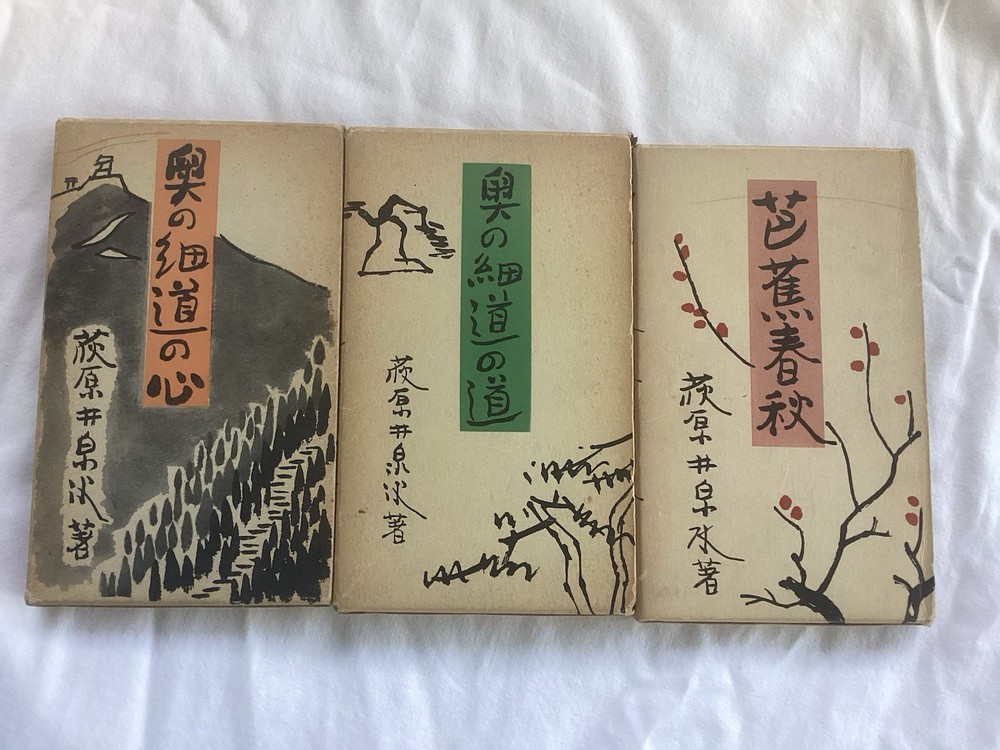 奥の細道の心
荻原井泉水著
奥の細道の道
荻原井泉水著
芭蕉春秋
荻原井泉水著